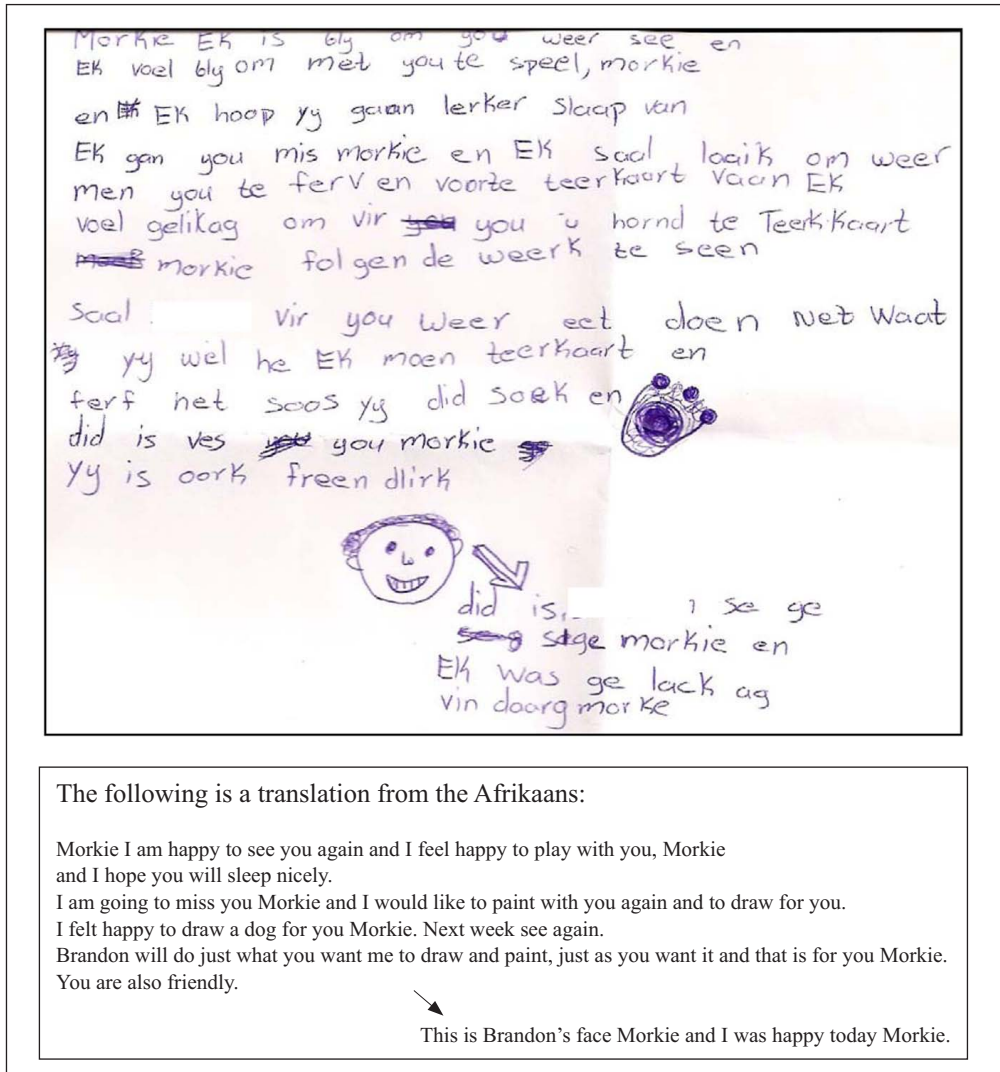 Morkie EK is bly om you weer see en
EK voel bly om met you te speel, morkie
en EK hoop yy gaan lerker slaap van
EK gan you mis morkie en EK saal laaik om weer
men you te ferv en voorte teerkaart vaan EK
voel gelikag om vir you u hornd te Teerkkaart
morkie folgende weerk te seen
Saal vir you weer eet doen net waat
yy wel he EK moen teerkaart en
ferf net soos yy did soek en
did is ves you morkie
yy is oork freendlirk
did is se ge
sage morkie en
EK was ge lack ag
vin daarg morke
The following is a translation from the Afrikaans:
Morkie I am happy to see you again and I feel happy to play with you, Morkie
and I hope you will sleep nicely.
I am going to miss you Morkie and I would like to paint with you again and to draw for you.
I felt happy to draw a dog for you Morkie. Next week see again.
Brandon will do just what you want me to draw and paint, just as you want it and that is for you Morkie.
You are also friendly.
This is Brandon's face Morkie and I was happy today Morkie.